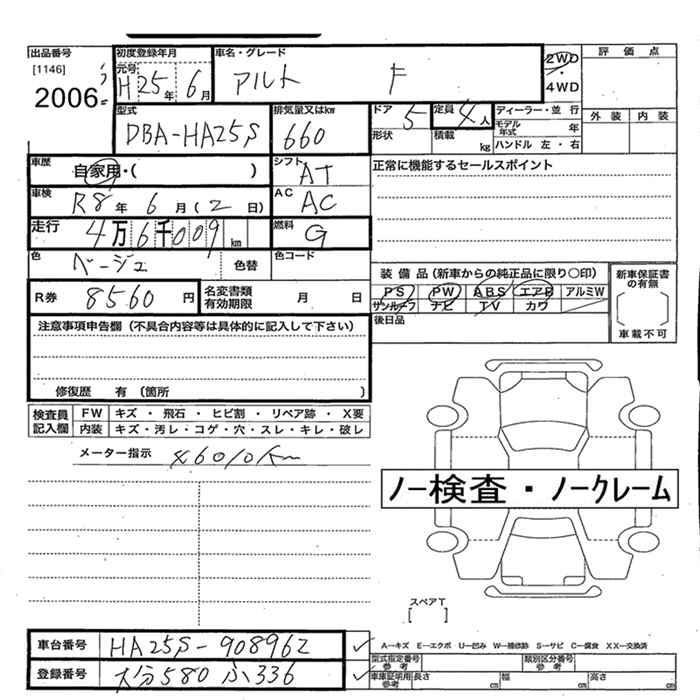 出品番号
[1146]
2006
初度登録年月
元号
H 25 年 6 月
車名・グレード
アルト F
2WD
・
4WD
評価点
外装 内装
型式
DBA-HA25S
排気量又はkw
660
ドア 5
形状
定員 4 人
積載 kg
ディーラー・並行
モデル年式 年
ハンドル 左・右
車歴
自家用・( )
シフト
AT
正常に機能するセールスポイント
車検
R8 年 6 月 (2 日)
AC
AC
走行
4万6千009 km
燃料
G
色
ベージュ
色替
色コード
R券 8560 円
名変書類
有効期限
月 日
装備品(新車からの純正品に限り〇印)
PS PW ABS エアB アルミW
サンルーフ ナビ TV カワ
後日品
新車保証書
の有無
車載不可
注意事項申告欄(不具合内容等は具体的に記入して下さい)
修復歴 有(箇所 )
検査員
記入欄
FW キズ・飛石・ヒビ割・リペア跡・X要
内装 キズ・汚レ・コゲ・穴・スレ・キレ・破レ
メーター指示 46010K
ノー検査・ノークレーム
スペアT
[ ]
車台番号 HA25S-908962
登録番号 大分580ふ336
A―キズ E―エクボ U―凹み W―補修跡 S―サビ C―腐食 XX―交換済
型式指定番号
参考
類別区分番号
参考
車庫証明用
参考
長さ cm
幅 cm
高さ cm